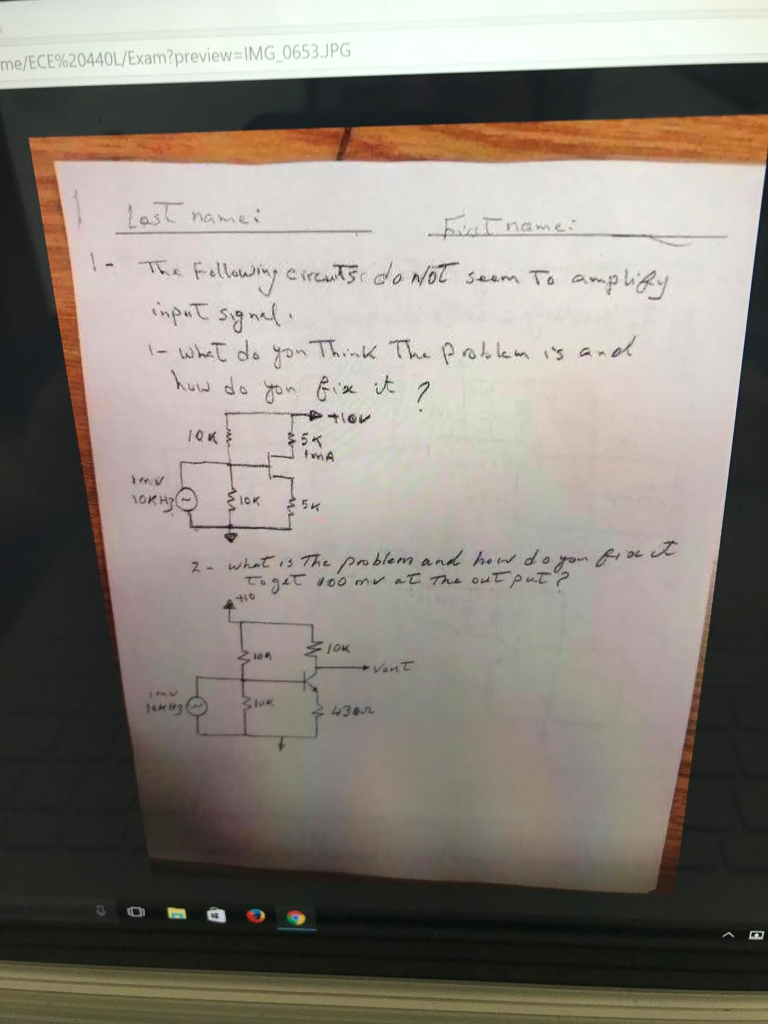 me/ECE%20440L/Exam?preview=IMG_0653.JPG
Last name:
First name:
1- The Following circuits do Not seem To amplify
input signal.
1- what do you Think The Problem is and
how do you fix it ?
+10V
10K
5K
1mA
1mV
10KHz
10K
5K
2- what is The problem and how do you fix it
To get 100 mv at The out put?
+10
10K
10K
Vout
1mv
10KHz
10K
430Ω